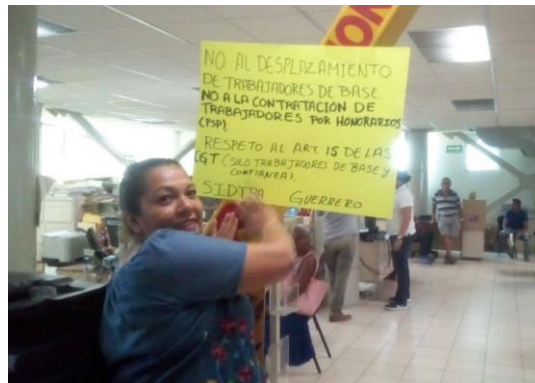 NO AL DESPLAZAMIENTO
DE TRABAJADORES DE BASE.
NO A LA CONTRATACIÓN DE
TRABAJADORES POR HONORARIOS
(PSP),
RESPETO AL ART. 15 DE LAS
CGT (SOLO TRABAJADORES DE BASE Y
CONFIANZA).
SIDTRA GUERRERO